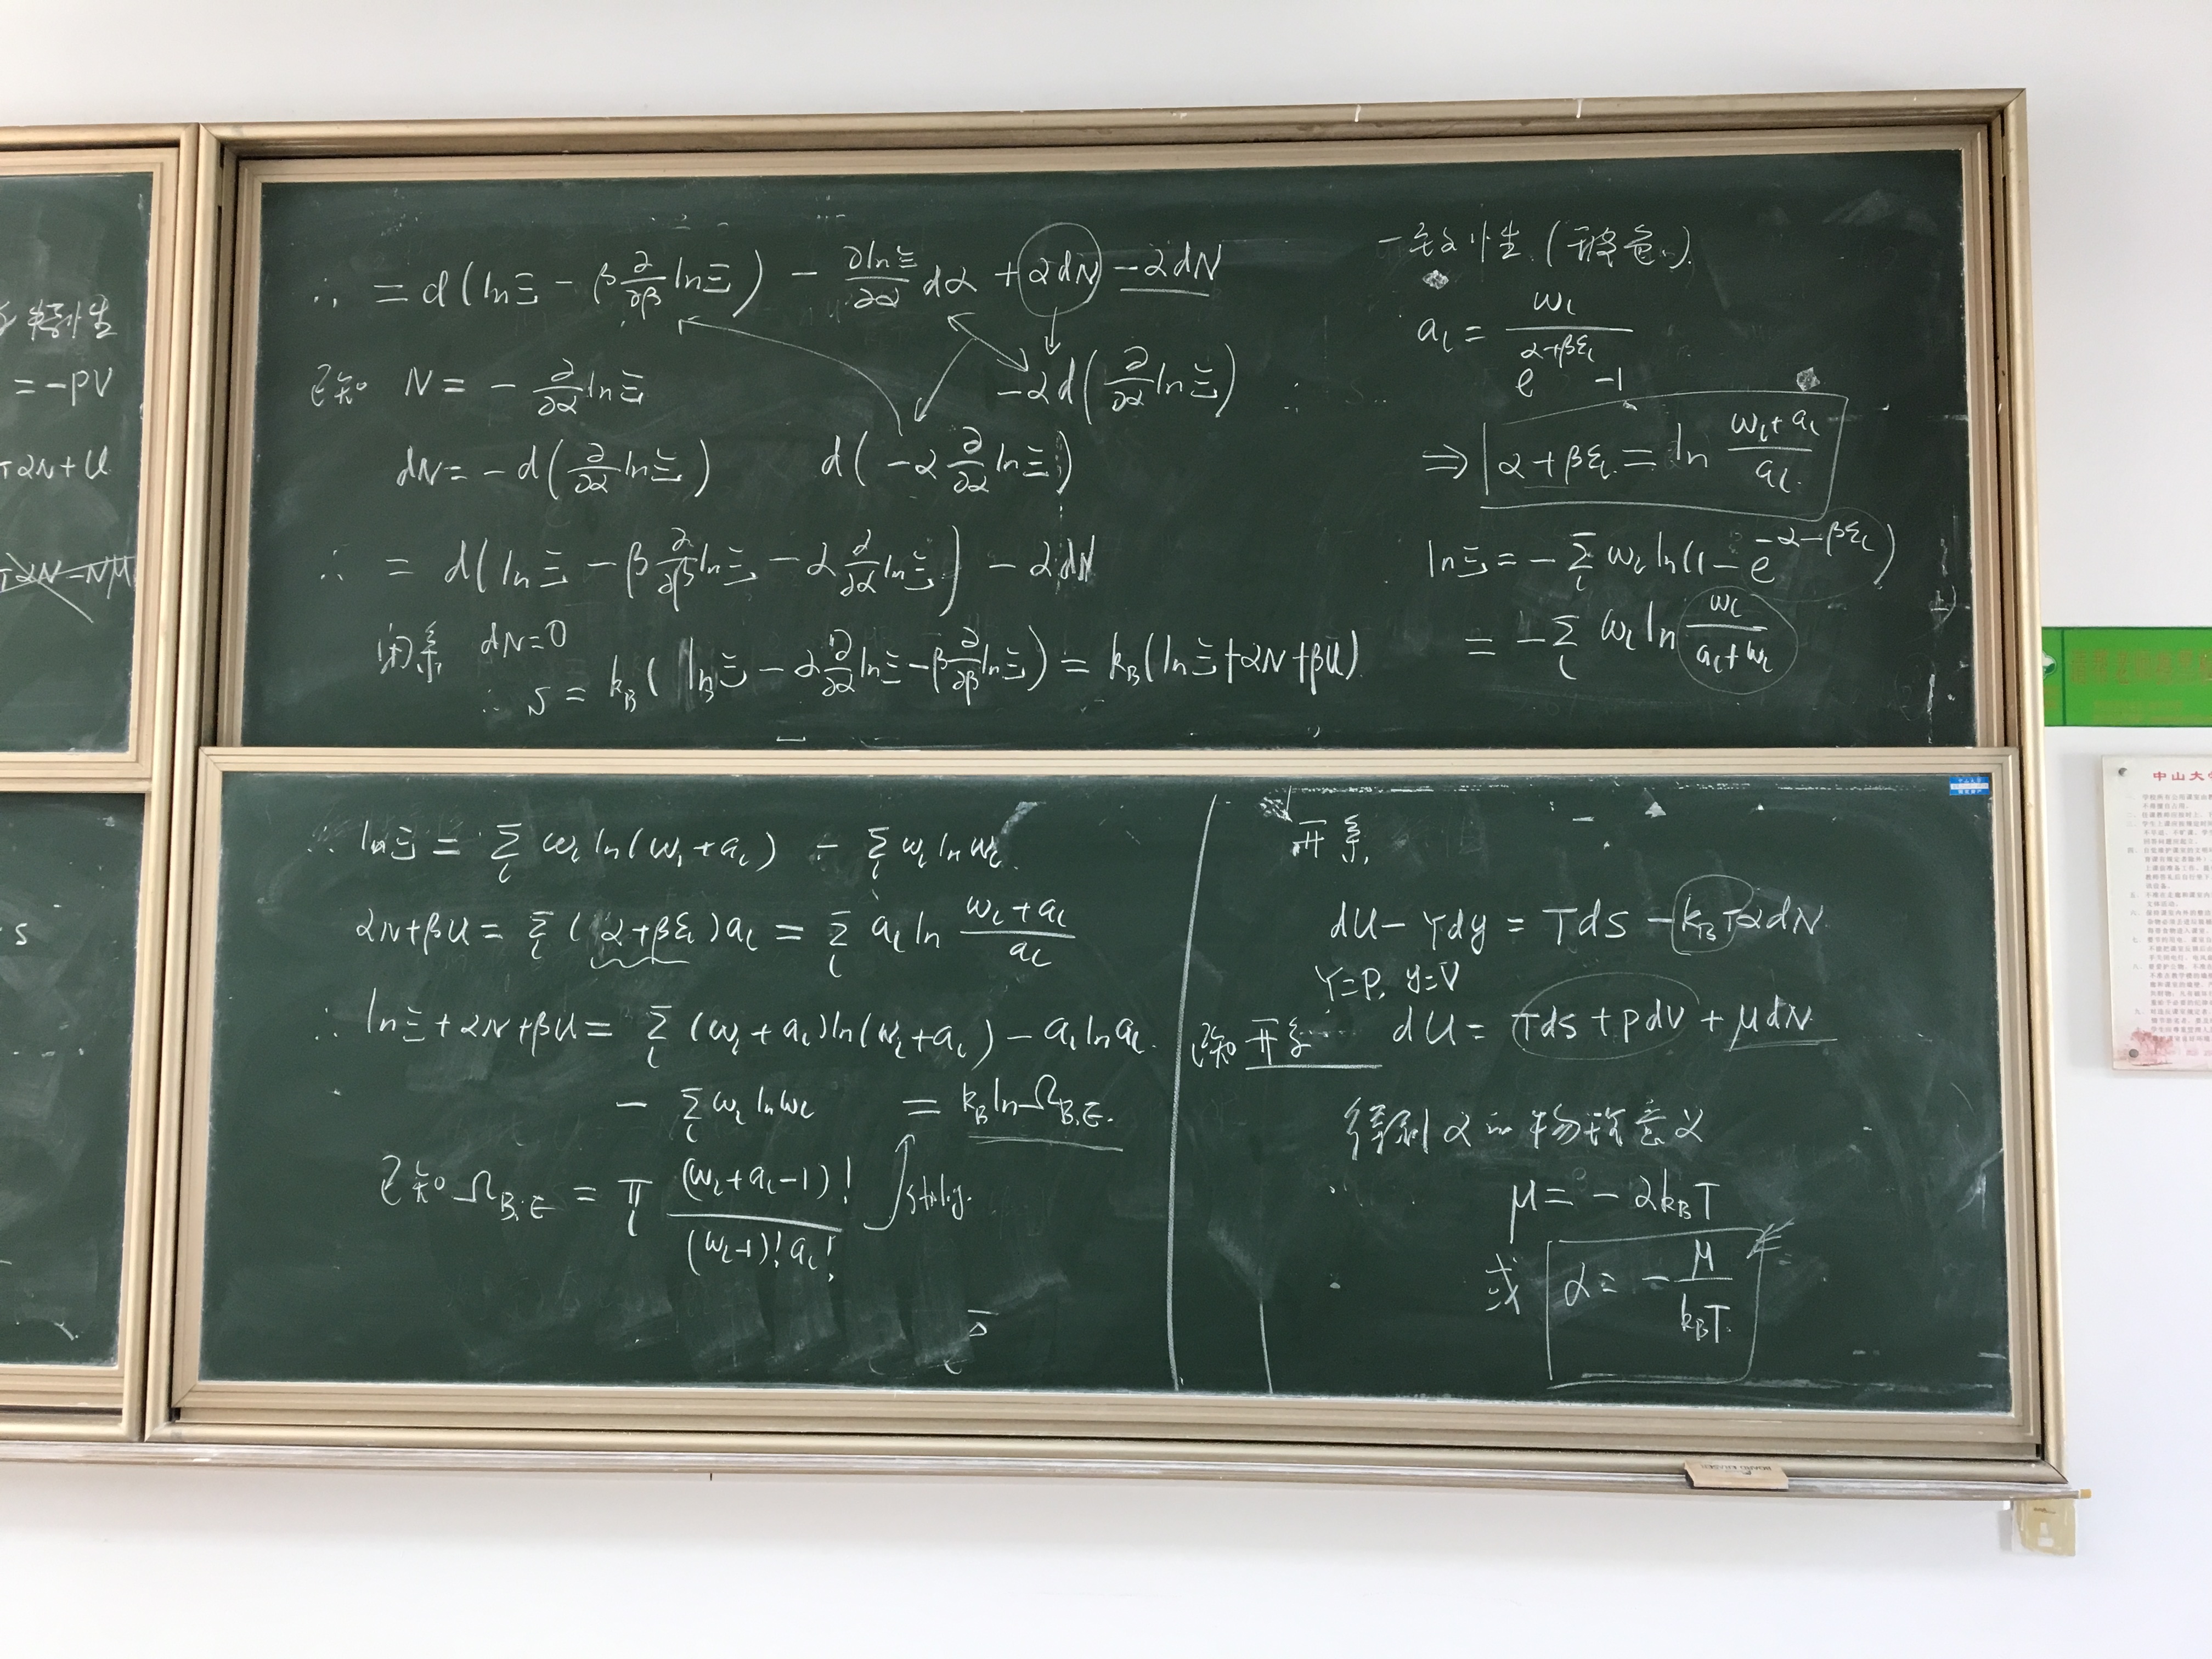 特性
= -PV
+αN+U
+αN-Nμ
s
∴ = d(lnΞ - β ∂/∂β lnΞ) - ∂lnΞ/∂α dα + αdN - αdN
已知 N = - ∂/∂α lnΞ
-αd(∂/∂α lnΞ)
dN = -d(∂/∂α lnΞ)
d(-α ∂/∂α lnΞ)
∴ = d(lnΞ - β ∂/∂β lnΞ - α ∂/∂α lnΞ) - αdN
闭系 dN=0
∴ S = k_B(lnΞ - α ∂/∂α lnΞ - β ∂/∂β lnΞ) = k_B(lnΞ+αN+βU)
一致性(玻色)
a_l = ω_l / (e^{α+βε_l} -1)
⇒ α+βε_l = ln (ω_l+a_l)/a_l
lnΞ = -Σ_l ω_l ln(1-e^{-α-βε_l})
= -Σ_l ω_l ln ω_l/(a_l+ω_l)
∴ lnΞ = Σ_l ω_l ln(ω_l+a_l) - Σ_l ω_l lnω_l
αN+βU = Σ_l (α+βε_l)a_l = Σ_l a_l ln (ω_l+a_l)/a_l
∴ lnΞ+αN+βU = Σ_l (ω_l+a_l)ln(ω_l+a_l) - a_l lna_l
- Σ_l ω_l lnω_l = k_B lnΩ_{B.E.}
已知 Ω_{B.E} = Π_l (ω_l+a_l-1)! / (ω_l-1)! a_l!
开系
dU-Ydy = TdS - k_BTαdN
Y=P, y=V
已知 开系 dU = TdS + PdV + μdN
得到α的物理意义
μ = -αk_BT
或 α = - μ/k_BT
中山大学
BOARD ERASER